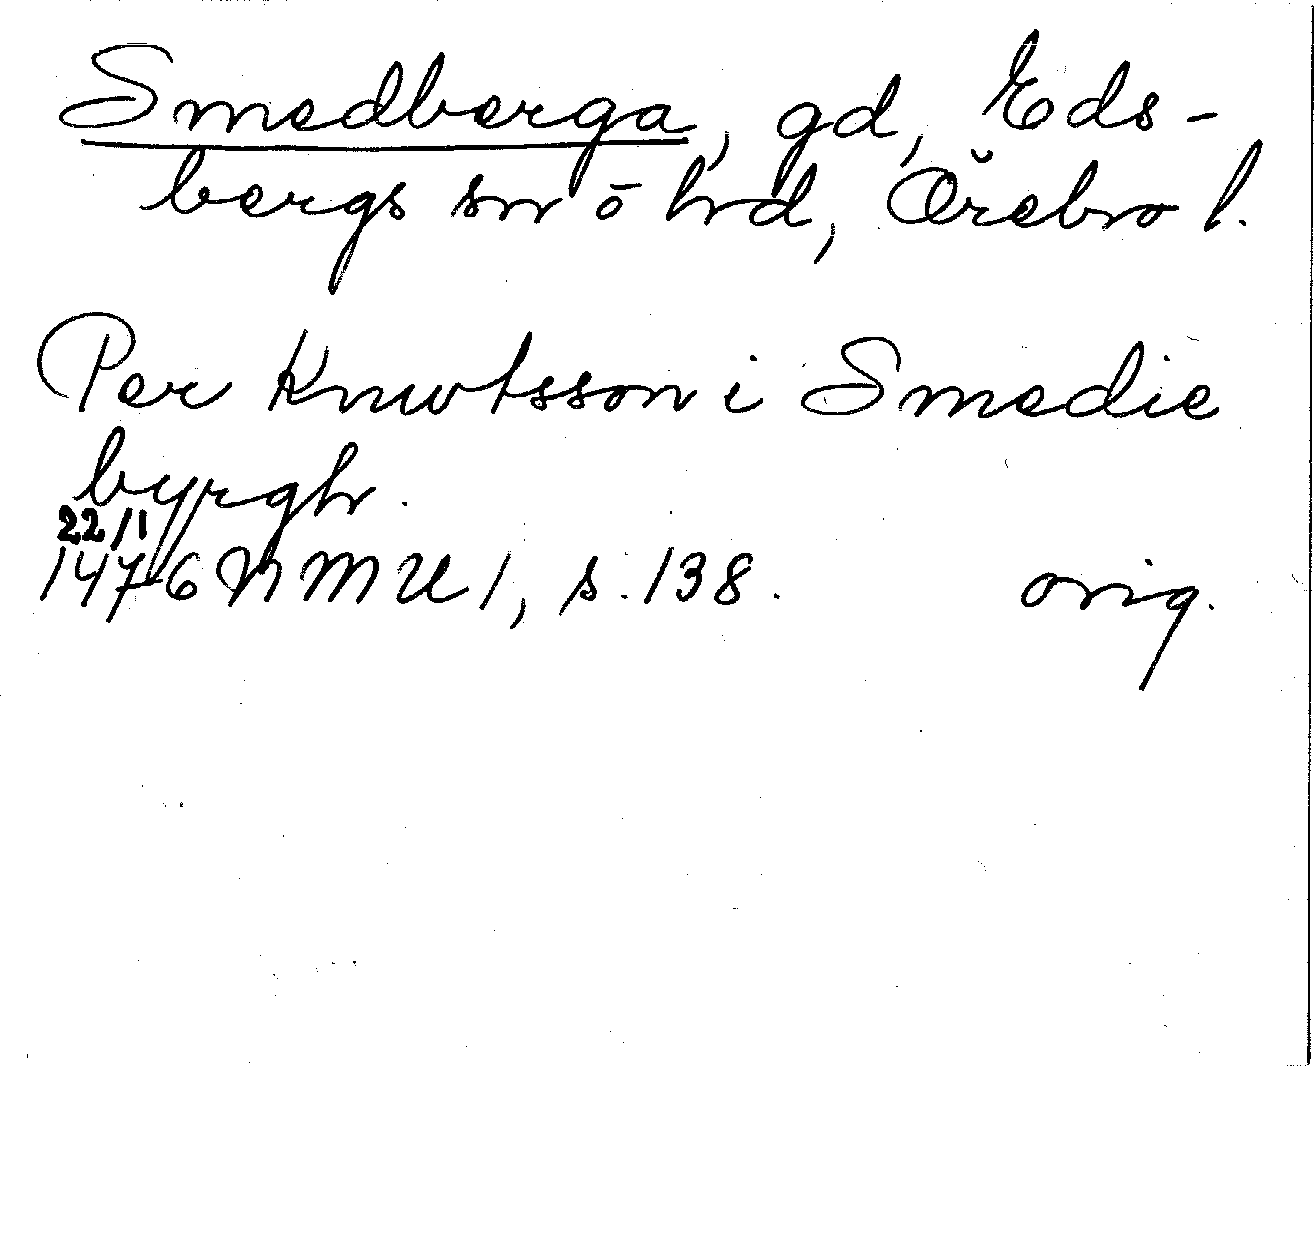 Smedberga, gd, Eds-
bergs sn o hd, Örebro l.
Per Knutsson i Smedie
byrgh.
22/1
1476 NMU 1, s. 138. orig.